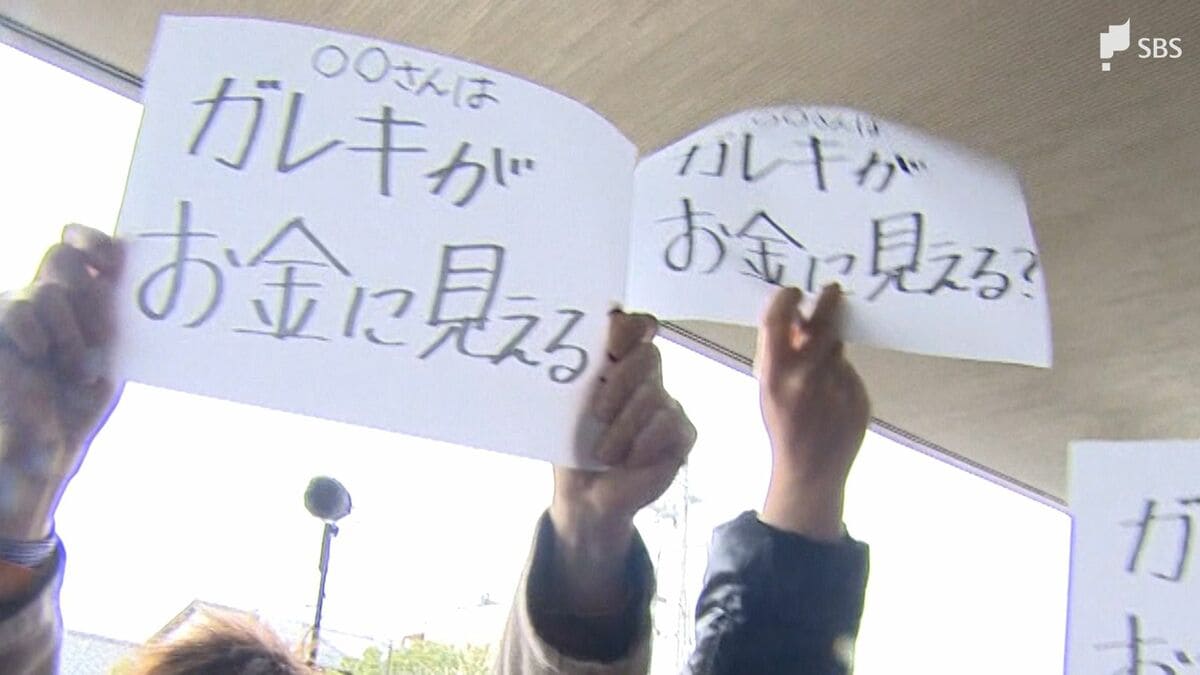 SBS
○○さんは
ガレキが
お金に見える
○○さんは
ガレキが
お金に見える?
ガ
お